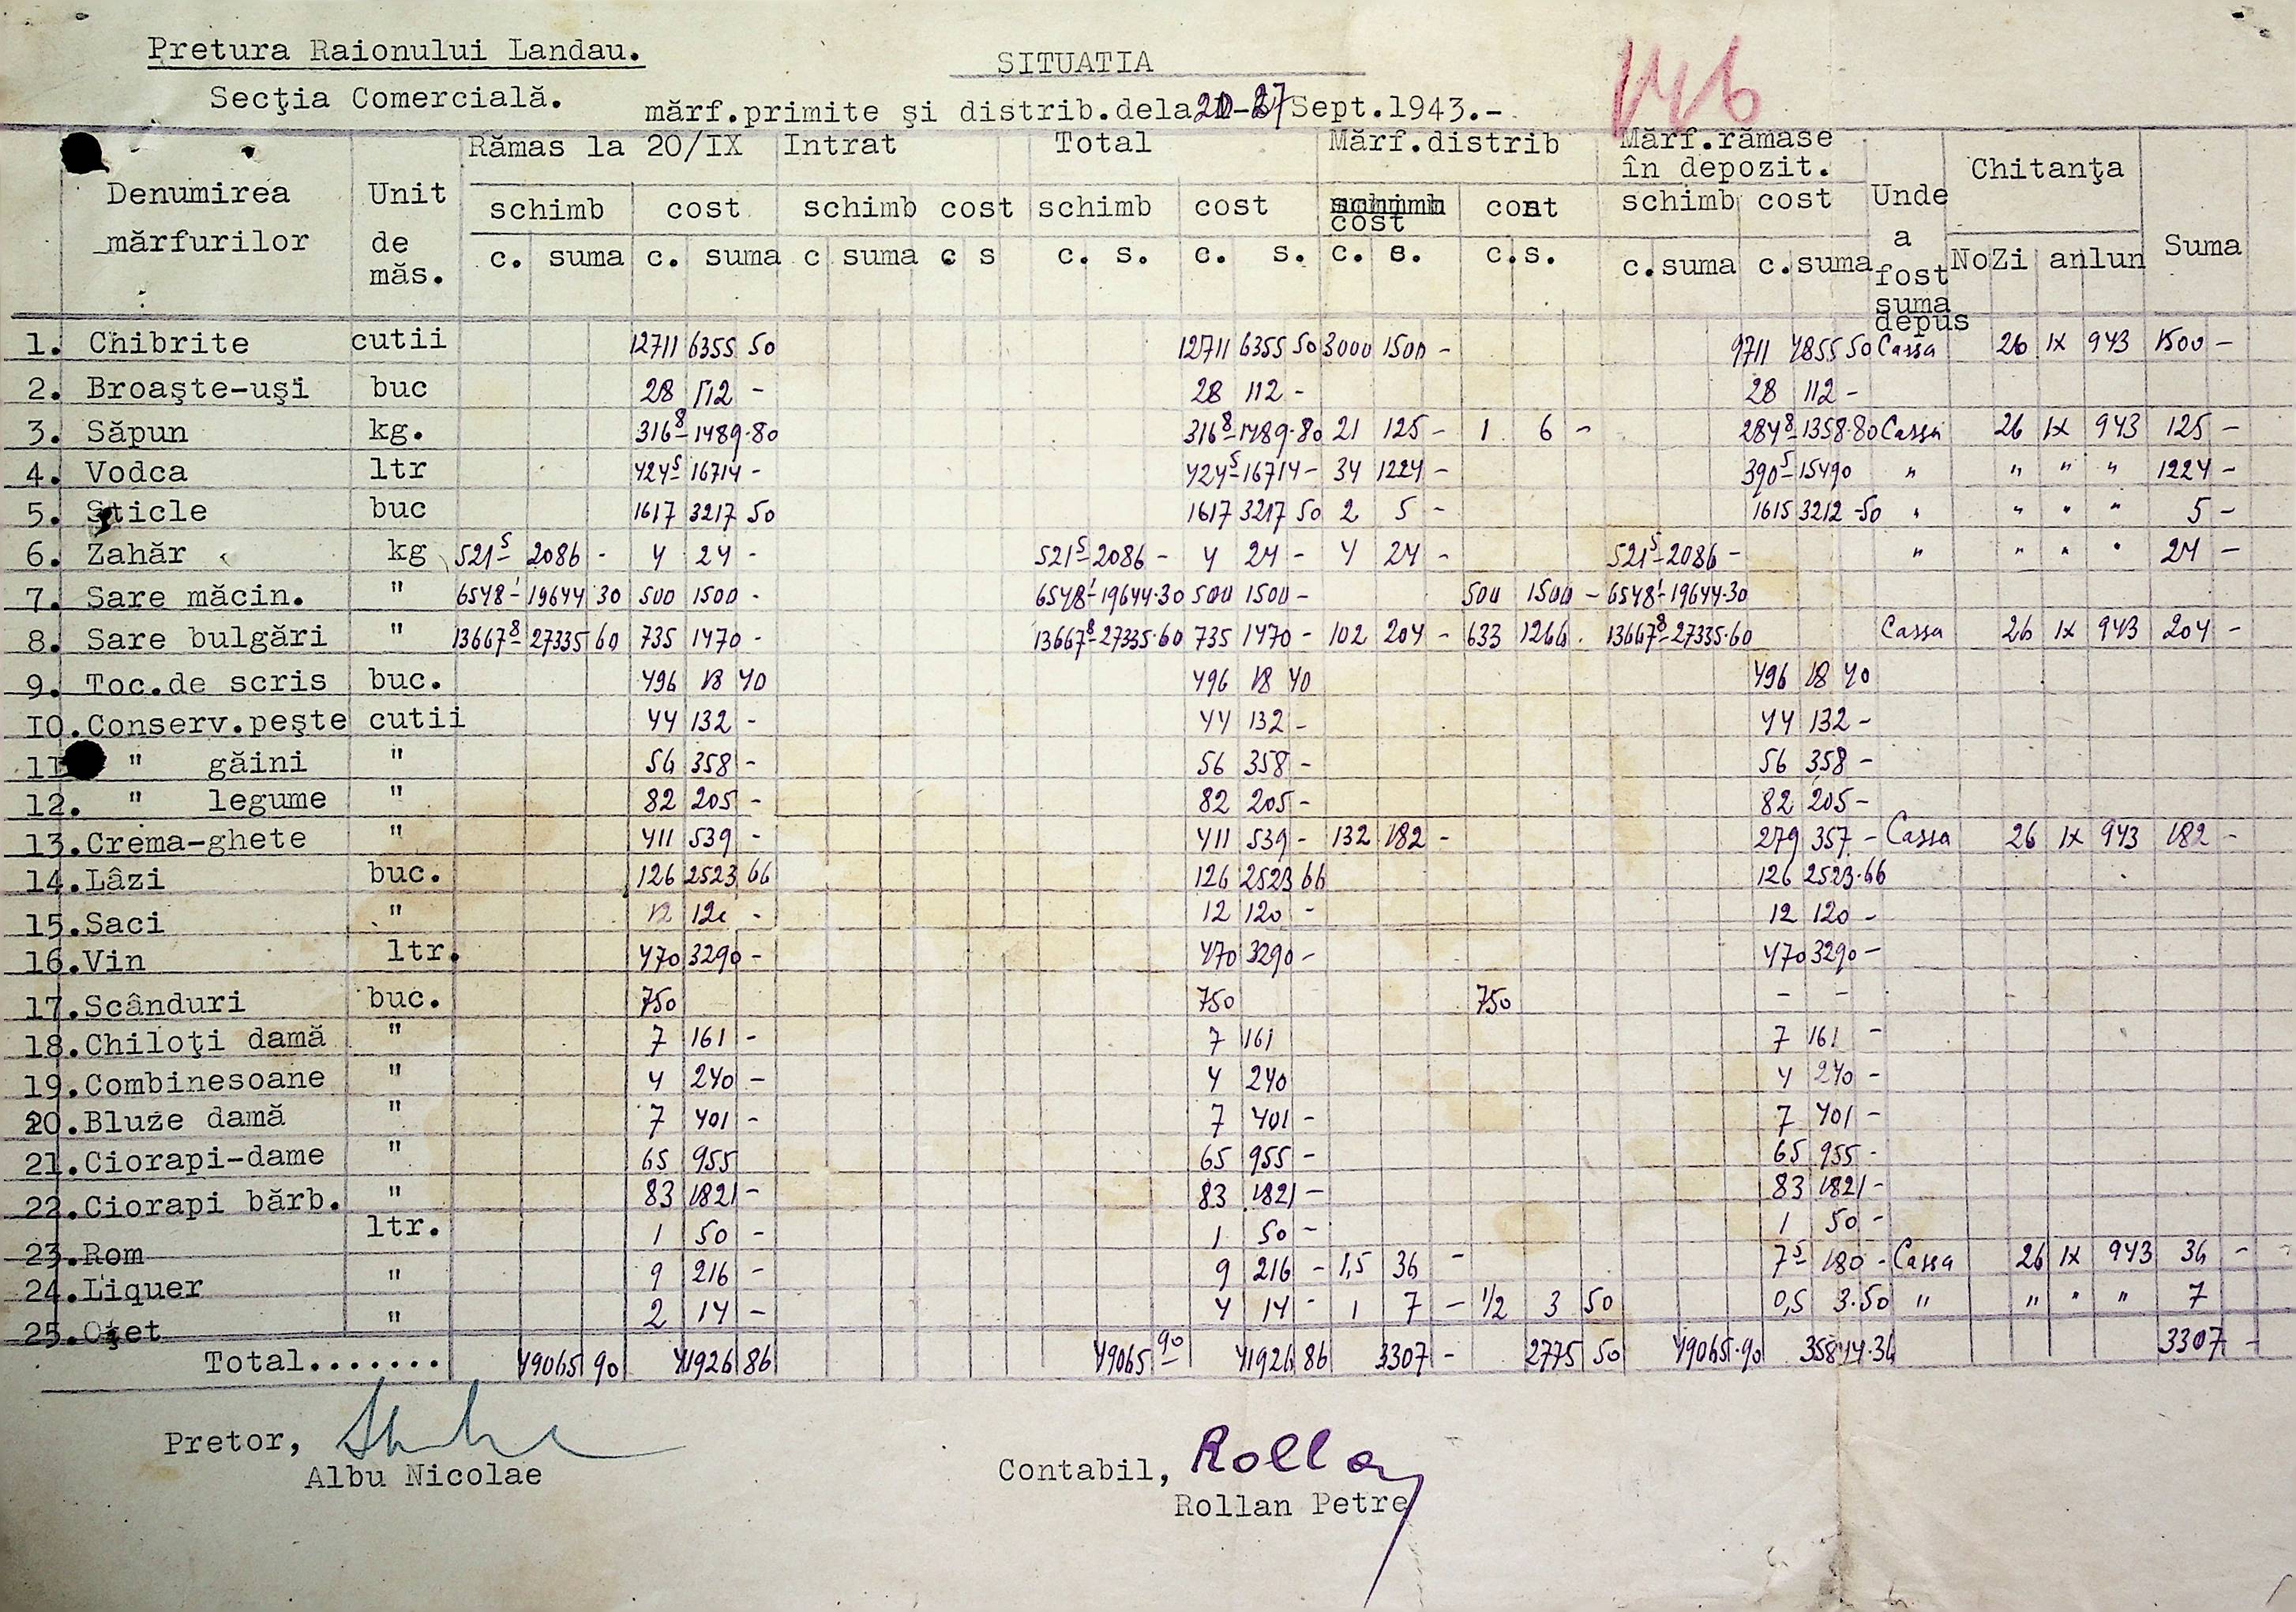 Pretura Raionului Landau.
SITUATIA
146
Secţia Comercială.
mărf.primite şi distrib.dela 20-27 Sept.1943.-
Denumirea mărfurilor Unit de măs. Rămas la 20/IX Intrat Total Mărf.distrib Mărf.rămase în depozit. Unde a fost suma depus Chitanţa Suma
schimb cost schimb cost schimb cost cost cont schimb cost
c. suma c. suma c suma c s c. s. c. s. c. s. c.s. c.suma c.suma No Zi an lun
1. Chibrite cutii 12711 6355 50 12711 6355 50 3000 1500 - 9711 4855 50 Cassa 26 IX 943 1500 -
2. Broaşte-uşi buc 28 112 - 28 112 - 28 112 -
3. Săpun kg. 316 8 1489.80 316 8 1489.80 21 125 - 1 6 - 284 8 1358.80 Cassa 26 IX 943 125 -
4. Vodca ltr 424 5 16714 - 424 5 16714 - 34 1224 - 390 5 15490 " " " " 1224 -
5. Sticle buc 1617 3217 50 1617 3217 50 2 5 - 1615 3212 50 " " " " 5 -
6. Zahăr kg 521 5 2086 - 4 24 - 521 5 2086 - 4 24 - 4 24 - 521 5 2086 - " " " " 24 -
7. Sare măcin. " 6548 1 19644 30 500 1500 - 6548 1 19644.30 500 1500 - 500 1500 - 6548 1 19644.30
8. Sare bulgări " 13667 8 27335 60 735 1470 - 13667 8 27335.60 735 1470 - 102 204 - 633 1266 . 13667 8 27335.60 Cassa 26 IX 943 204 -
9. Toc.de scris buc. 496 18 40 496 18 40 496 18 40
10. Conserv.peşte cutii 44 132 - 44 132 - 44 132 -
11 " găini " 56 358 - 56 358 - 56 358 -
12. " legume " 82 205 - 82 205 - 82 205 -
13. Crema-ghete " 411 539 - 411 539 - 132 182 - 279 357 - Cassa 26 IX 943 182 -
14. Lăzi buc. 126 2523 66 126 2523 66 126 2523.66
15. Saci " 12 120 - 12 120 - 12 120 -
16. Vin ltr. 470 3290 - 470 3290 - 470 3290 -
17. Scânduri buc. 750 750 750 - -
18. Chiloţi damă " 7 161 - 7 161 7 161 -
19. Combinesoane " 4 240 - 4 240 4 240 -
20. Bluze damă " 7 401 - 7 401 - 7 401 -
21. Ciorapi-dame " 65 955 65 955 - 65 955 -
22. Ciorapi bărb. " 83 1821 - 83 1821 - 83 1821 -
23. Rom ltr. 1 50 - 1 50 - 1 50 -
24. Liquer " 9 216 - 9 216 - 1,5 36 - 7 5 180 - Cassa 26 IX 943 36 -
25. Oţet " 2 14 - 4 14 - 1 7 - 1/2 3 50 0,5 3.50 " " " " 7
Total....... 49065 90 41926 86 49065 90 41926 86 3307 - 2775 50 49065.90 35844.36 3307 -
Pretor,
Albu Nicolae
Contabil, Rolla
Rollan Petre